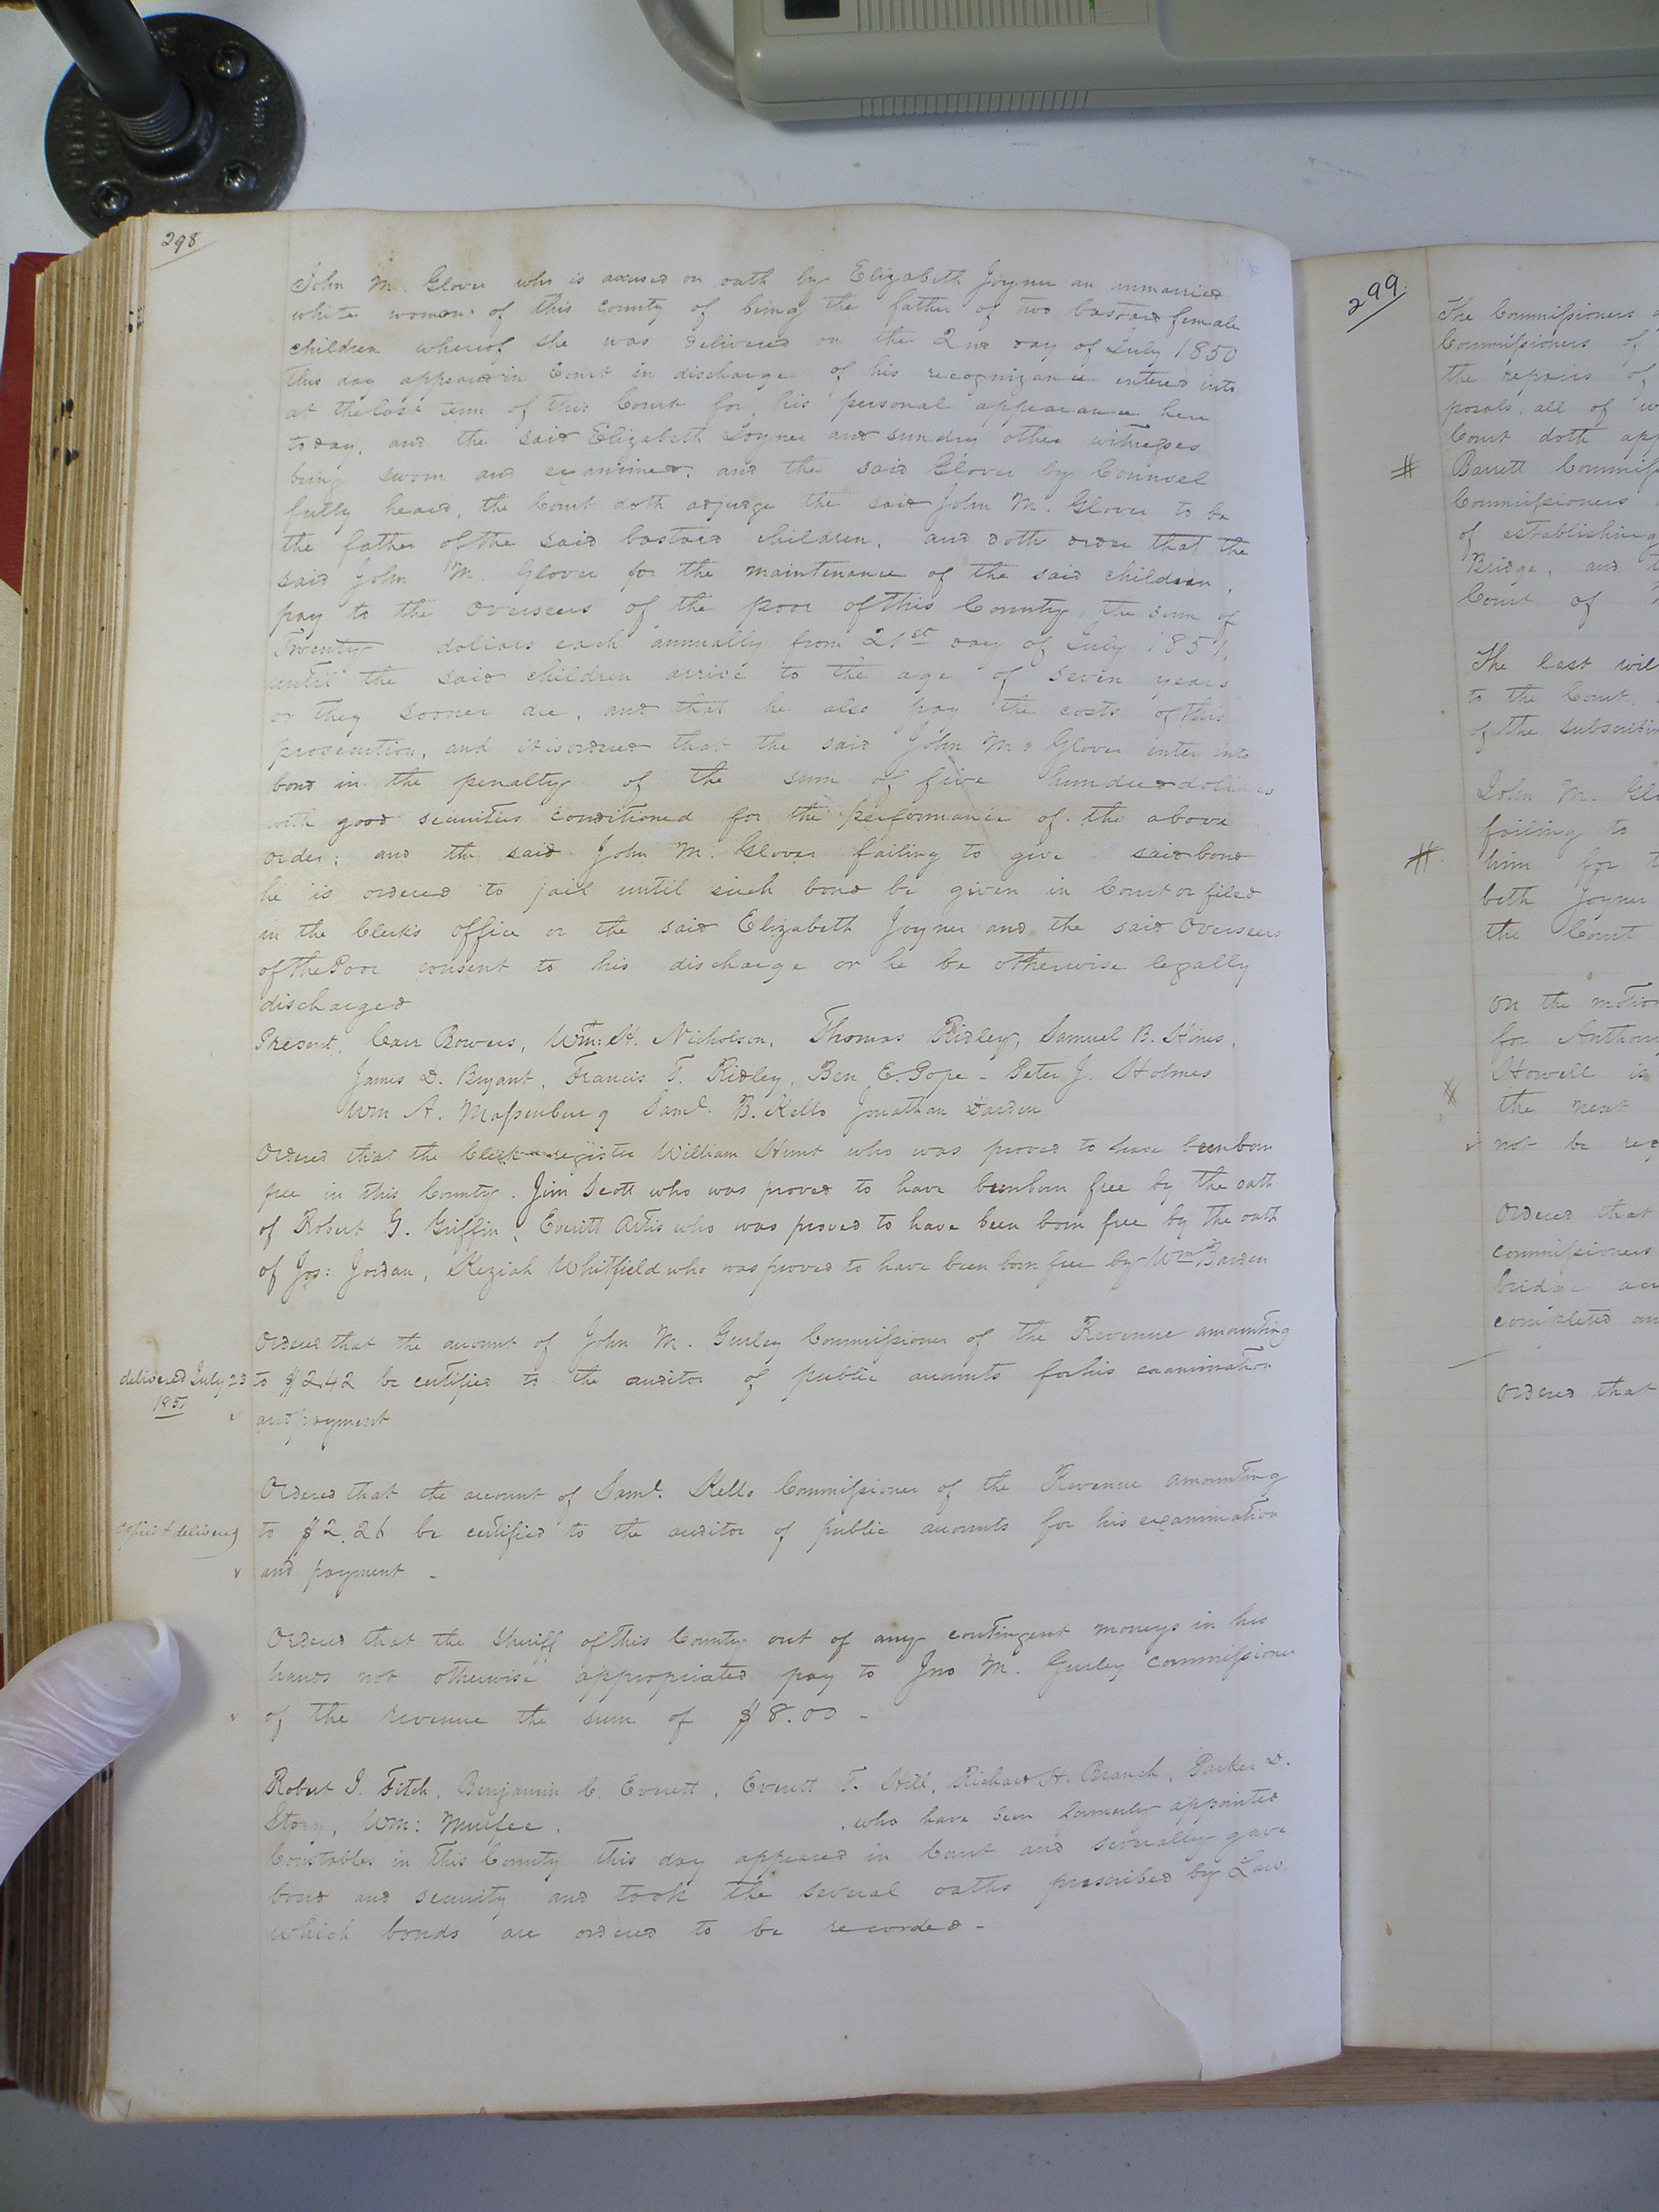 298
John M. Glover who is accused on oath by Elizabeth Joyner an unmarried
white woman of this County of being the father of two bastard female
children whereof she was delivered on the 2nd day of July 1850
this day appeared in Court in discharge of his recognizance entered into
at the last term of this Court for his personal appearance here
to day, and the said Elizabeth Joyner and sundry other witnesses
being sworn and examined, and the said Glover by Counsel
fully heard, the Court doth adjudge the said John M. Glover to be
the father of the said bastard children, and doth order that the
said John M. Glover for the maintenance of the said children,
pay to the Overseers of the poor of this County, the sum of
Twenty dollars each annually from 21st day of July 1851,
until the said children arrive to the age of seven years
or they sooner die, and that he also pay the costs of this
prosecution, and it is ordered that the said John M. Glover enter into
bond in the penalty of the sum of five hundred dollars
with good securities conditioned for the performance of the above
order; and the said John M. Glover failing to give said bond
he is ordered to jail until such bond be given in Court or filed
in the Clerks office or the said Elizabeth Joyner and the said Overseers
of the Poor consent to his discharge or he be otherwise legally
discharged
Present, Carr Bowers, Wm: H. Nicholson, Thomas Ridley, Samuel B. Hines,
James D. Bryant, Francis T. Ridley, Ben E. Pope - Peter J. Holmes
Wm A. Massenburg Saml. B. Kello Jonathan Darden
Ordered that the Clerk register William Hunt who was proved to have been born
free in this County. Jim Scott who was proved to have been born free by the oath
of Robert G. Griffin, Everitt Artis who was proved to have been born free by the oath
of Jos: Jordan, Keziah Whitfield who was proved to have been born free by Wm Barden
Ordered that the account of John M. Gurley Commissioner of the Revenue amounting
delivered July 23 to $242 be certified to the auditor of public accounts for his examination
1851 and payment
Ordered that the account of Saml. Kello Commissioner of the Revenue amounting
copied & delivered to $2.26 be certified to the auditor of public accounts for his examination
and payment -
Ordered that the Sheriff of this County out of any contingent moneys in his
hands not otherwise appropriated pay to Jno M. Gurley commissioner
of the revenue the sum of $8.00 -
Robert I. Fitch, Benjamin C. Everett, Everett T. Hill, Richard H. Branch, Parker D.
Story, Wm: Murfee, who have been formerly appointed
Constables in this County this day appeared in Court and severally gave
bond and security and took the several oaths prescribed by Law.
which bonds are ordered to be recorded -
299.
The Commissioners
Commissioners of
the repairs of
posals, all of
Court doth
# Barrett
Commissioners
of establishing
Bridge, and
Court of
The last
to the Court,
of the
John M.
failing to
# him for
beth Joyner
the Court
On the
for
Howell is
the next
not be
Ordered that
commissioners
bridge
completed
Ordered that